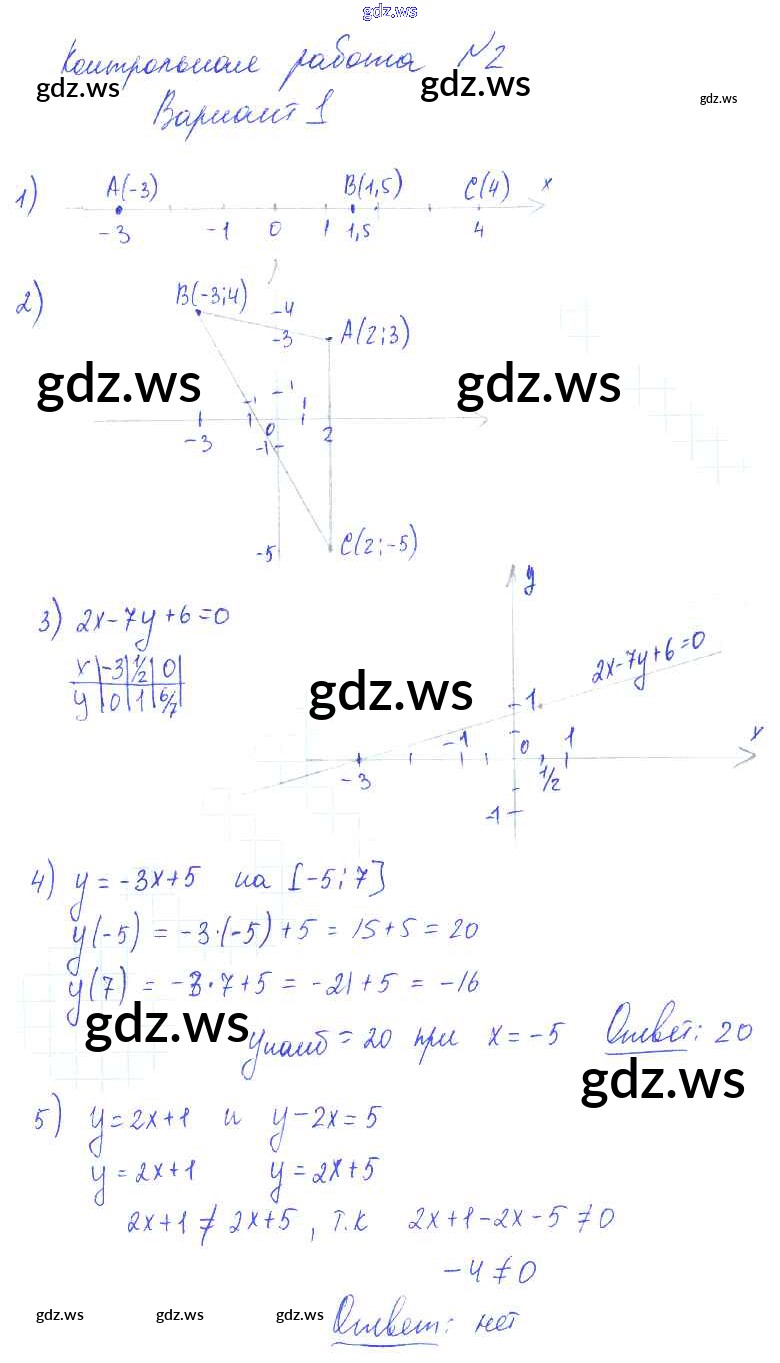 gdz.ws
Контрольная работа №2
gdz.ws gdz.ws gdz.ws
Вариант 1
1) A(-3) B(1,5) C(4) x
-3 -1 0 1 1,5 4
2) B(-3;4) -4
-3 A(2;3)
gdz.ws gdz.ws
-1 -1 1
-3 0 2
-1
-5 C(2;-5)
y
3) 2x-7y+6=0
2x-7y+6=0
x | -3 | 1/2 | 0
y | 0 | 1 | 6/7
gdz.ws
1
-1 0 1 x
-3 1/2
-1
4) y = -3x+5 на [-5;7]
y(-5) = -3·(-5)+5 = 15+5 = 20
y(7) = -3·7+5 = -21+5 = -16
gdz.ws
yнаиб = 20 при x = -5 Ответ: 20
gdz.ws
5) y=2x+1 и y-2x=5
y=2x+1 y=2x+5
2x+1 ≠ 2x+5, т.к 2x+1-2x-5 ≠ 0
-4 ≠ 0
gdz.ws gdz.ws gdz.ws
Ответ: нет